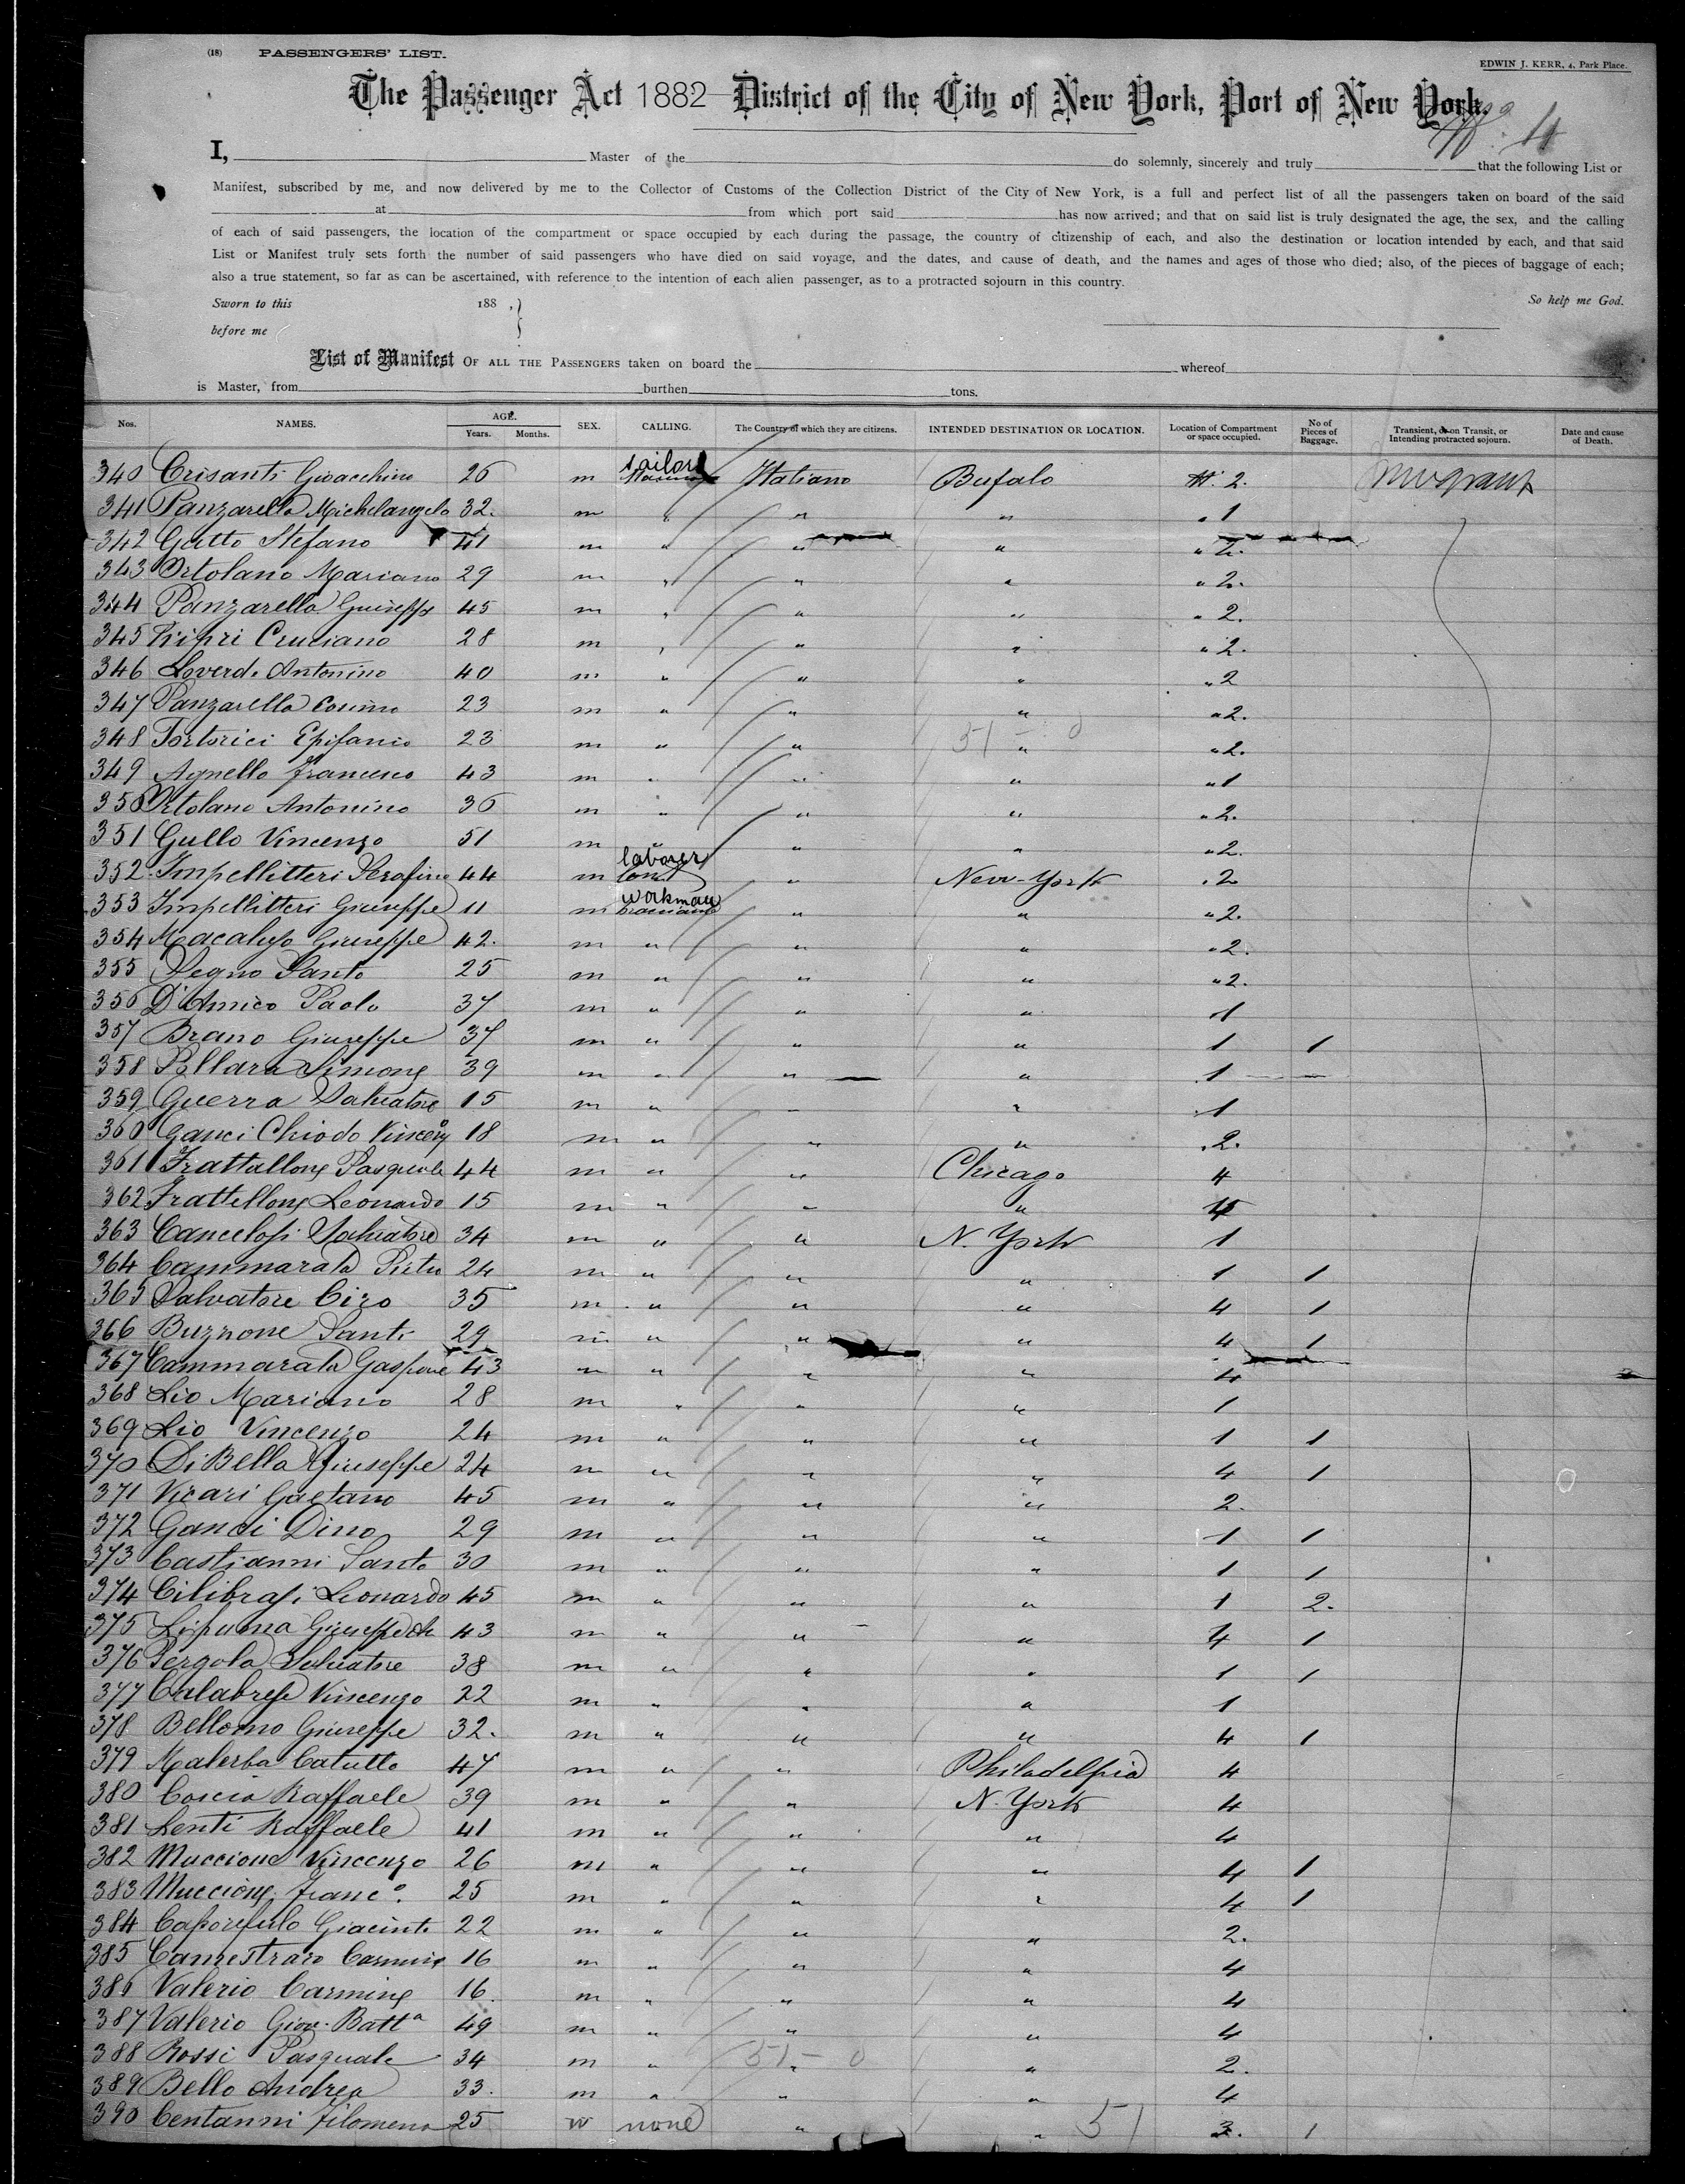 (18) PASSENGERS' LIST.
EDWIN J. KERR, 4, Park Place.
The Passenger Act 1882 District of the City of New York, Port of New York.
I, Master of the do solemnly, sincerely and truly that the following List or
Manifest, subscribed by me, and now delivered by me to the Collector of Customs of the Collection District of the City of New York, is a full and perfect list of all the passengers taken on board of the said
at from which port said has now arrived; and that on said list is truly designated the age, the sex, and the calling
of each of said passengers, the location of the compartment or space occupied by each during the passage, the country of citizenship of each, and also the destination or location intended by each, and that said
List or Manifest truly sets forth the number of said passengers who have died on said voyage, and the dates, and cause of death, and the names and ages of those who died; also, of the pieces of baggage of each;
also a true statement, so far as can be ascertained, with reference to the intention of each alien passenger, as to a protracted sojourn in this country.
Sworn to this 188 , So help me God.
before me
List of Manifest OF ALL THE PASSENGERS taken on board the whereof
is Master, from burthen tons.
Nos. NAMES. AGE. Years. Months. SEX. CALLING. The Country of which they are citizens. INTENDED DESTINATION OR LOCATION. Location of Compartment or space occupied. No of Pieces of Baggage. Transient, or on Transit, or Intending protracted sojourn. Date and cause of Death.
340 Crisanti Gioacchino 26 m tailor Italiano Bufalo 2.
341 Panzarella Michelangelo 32. m " " " " 1
342 Gutto Stefano 41 m " " " " 2.
343 Ortolano Mariano 29 m " " " " 2.
344 Panzarella Guiseppe 45 m " " " " 2.
345 Cruciano 28 m " " " " 2.
346 Loverde Antonino 40 m " " " " 2
347 Panzarella Cosimo 23 m " " " " 2.
348 Tortorici Epifanio 23 m " " " " 2.
349 Agnello Francesco 43 m " " " " 1
350 Ortolano Antonino 36 m " " " " 2.
351 Gullo Vincenzo 51 m " " " " 2.
352. Impellitteri Serafino 44 m laborer " New-York " 2
353 Impellitteri Giuseppe 11 m workman " " " 2.
354 Macaluso Giuseppe 42. m " " " " 2.
355 Segno Santo 25 m " " " " 2.
356 D'Amico Paolo 37 m " " " 1
357 Brano Giuseppe 37 m " " " 1 1
358 Pollara Simone 39 m " " " 1
359 Guerra Salvatore 15 m " " " 1
360 Ganci Chiodo Vincenzo 18 m " " " 2.
361 Frattallone Pasquale 44 m " " Chicago 4
362 Frattellone Leonardo 15 m " " " 4
363 Cancelosi Salvatore 34 m " " N. York 1
364 Cammarata Pietro 24 m " " " 1 1
365 Salvatore Ciro 35 m " " " 4 1
366 Buznone Santi 29 m " " " 4 1
367 Cammarata Gaspare 43 m " " " 4
368 Lio Mariano 28 m " " " 1
369 Lio Vincenzo 24 m " " " 1 1
370 Di Bella Giuseppe 24 m " " " 4 1
371 Vicari Gaetano 45 m " " " 2.
372 Ganci Dino 29 m " " " 1 1
373 Castianni Santo 30 m " " " 1 1
374 Cilibrasi Leonardo 45 m " " " 1 2.
375 Lipuma Giuseppe 43 m " " " 4 1
376 Pergola Salvatore 38 m " " " 1 1
377 Calabrese Vincenzo 22 m " " " 1
378 Bellomo Giuseppe 32. m " " " 4 1
379 Malerba Catullo 47 m " " Philadelfia 4
380 Coscia Raffaele 39 m " " N. York 4
381 Lenti Raffaele 41 m " " " 4
382 Muccione Vincenzo 26 m " " " 4 1
383 Muccione Franc°. 25 m " " " 4 1
384 Giacinto 22 m " " " 2.
385 Camestraro Carmine 16 m " " " 4
386 Valerio Carmine 16. m " " " 4
387 Valerio Giov. Batta 49 m " " " 4
388 Rossi Pasquale 34 m " " " 2.
389 Bello Andrea 33. m " " " 4
390 Centanni Filomena 25 w none " " 51 3. 1